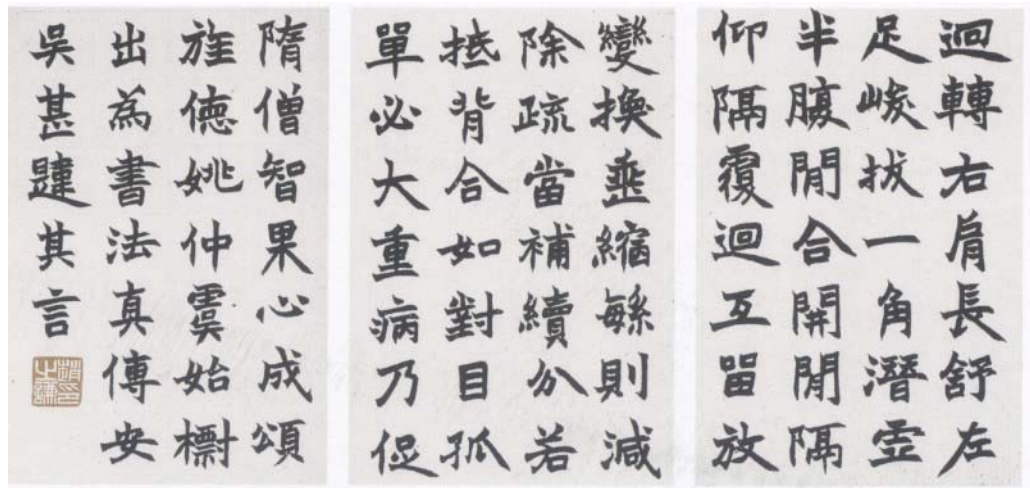 迴轉右肩長舒左
足峻拔一角潛虛
半腹閒合開閒隔
仰隔覆迴互留放
變換垂縮緐則減
除疏當補續分若
抵背合如對目孤
單必大重病乃促
隋僧智果心成頌
旌德姚仲虞始檦
出為書法真傳安
吳甚韙其言
趙之謙印